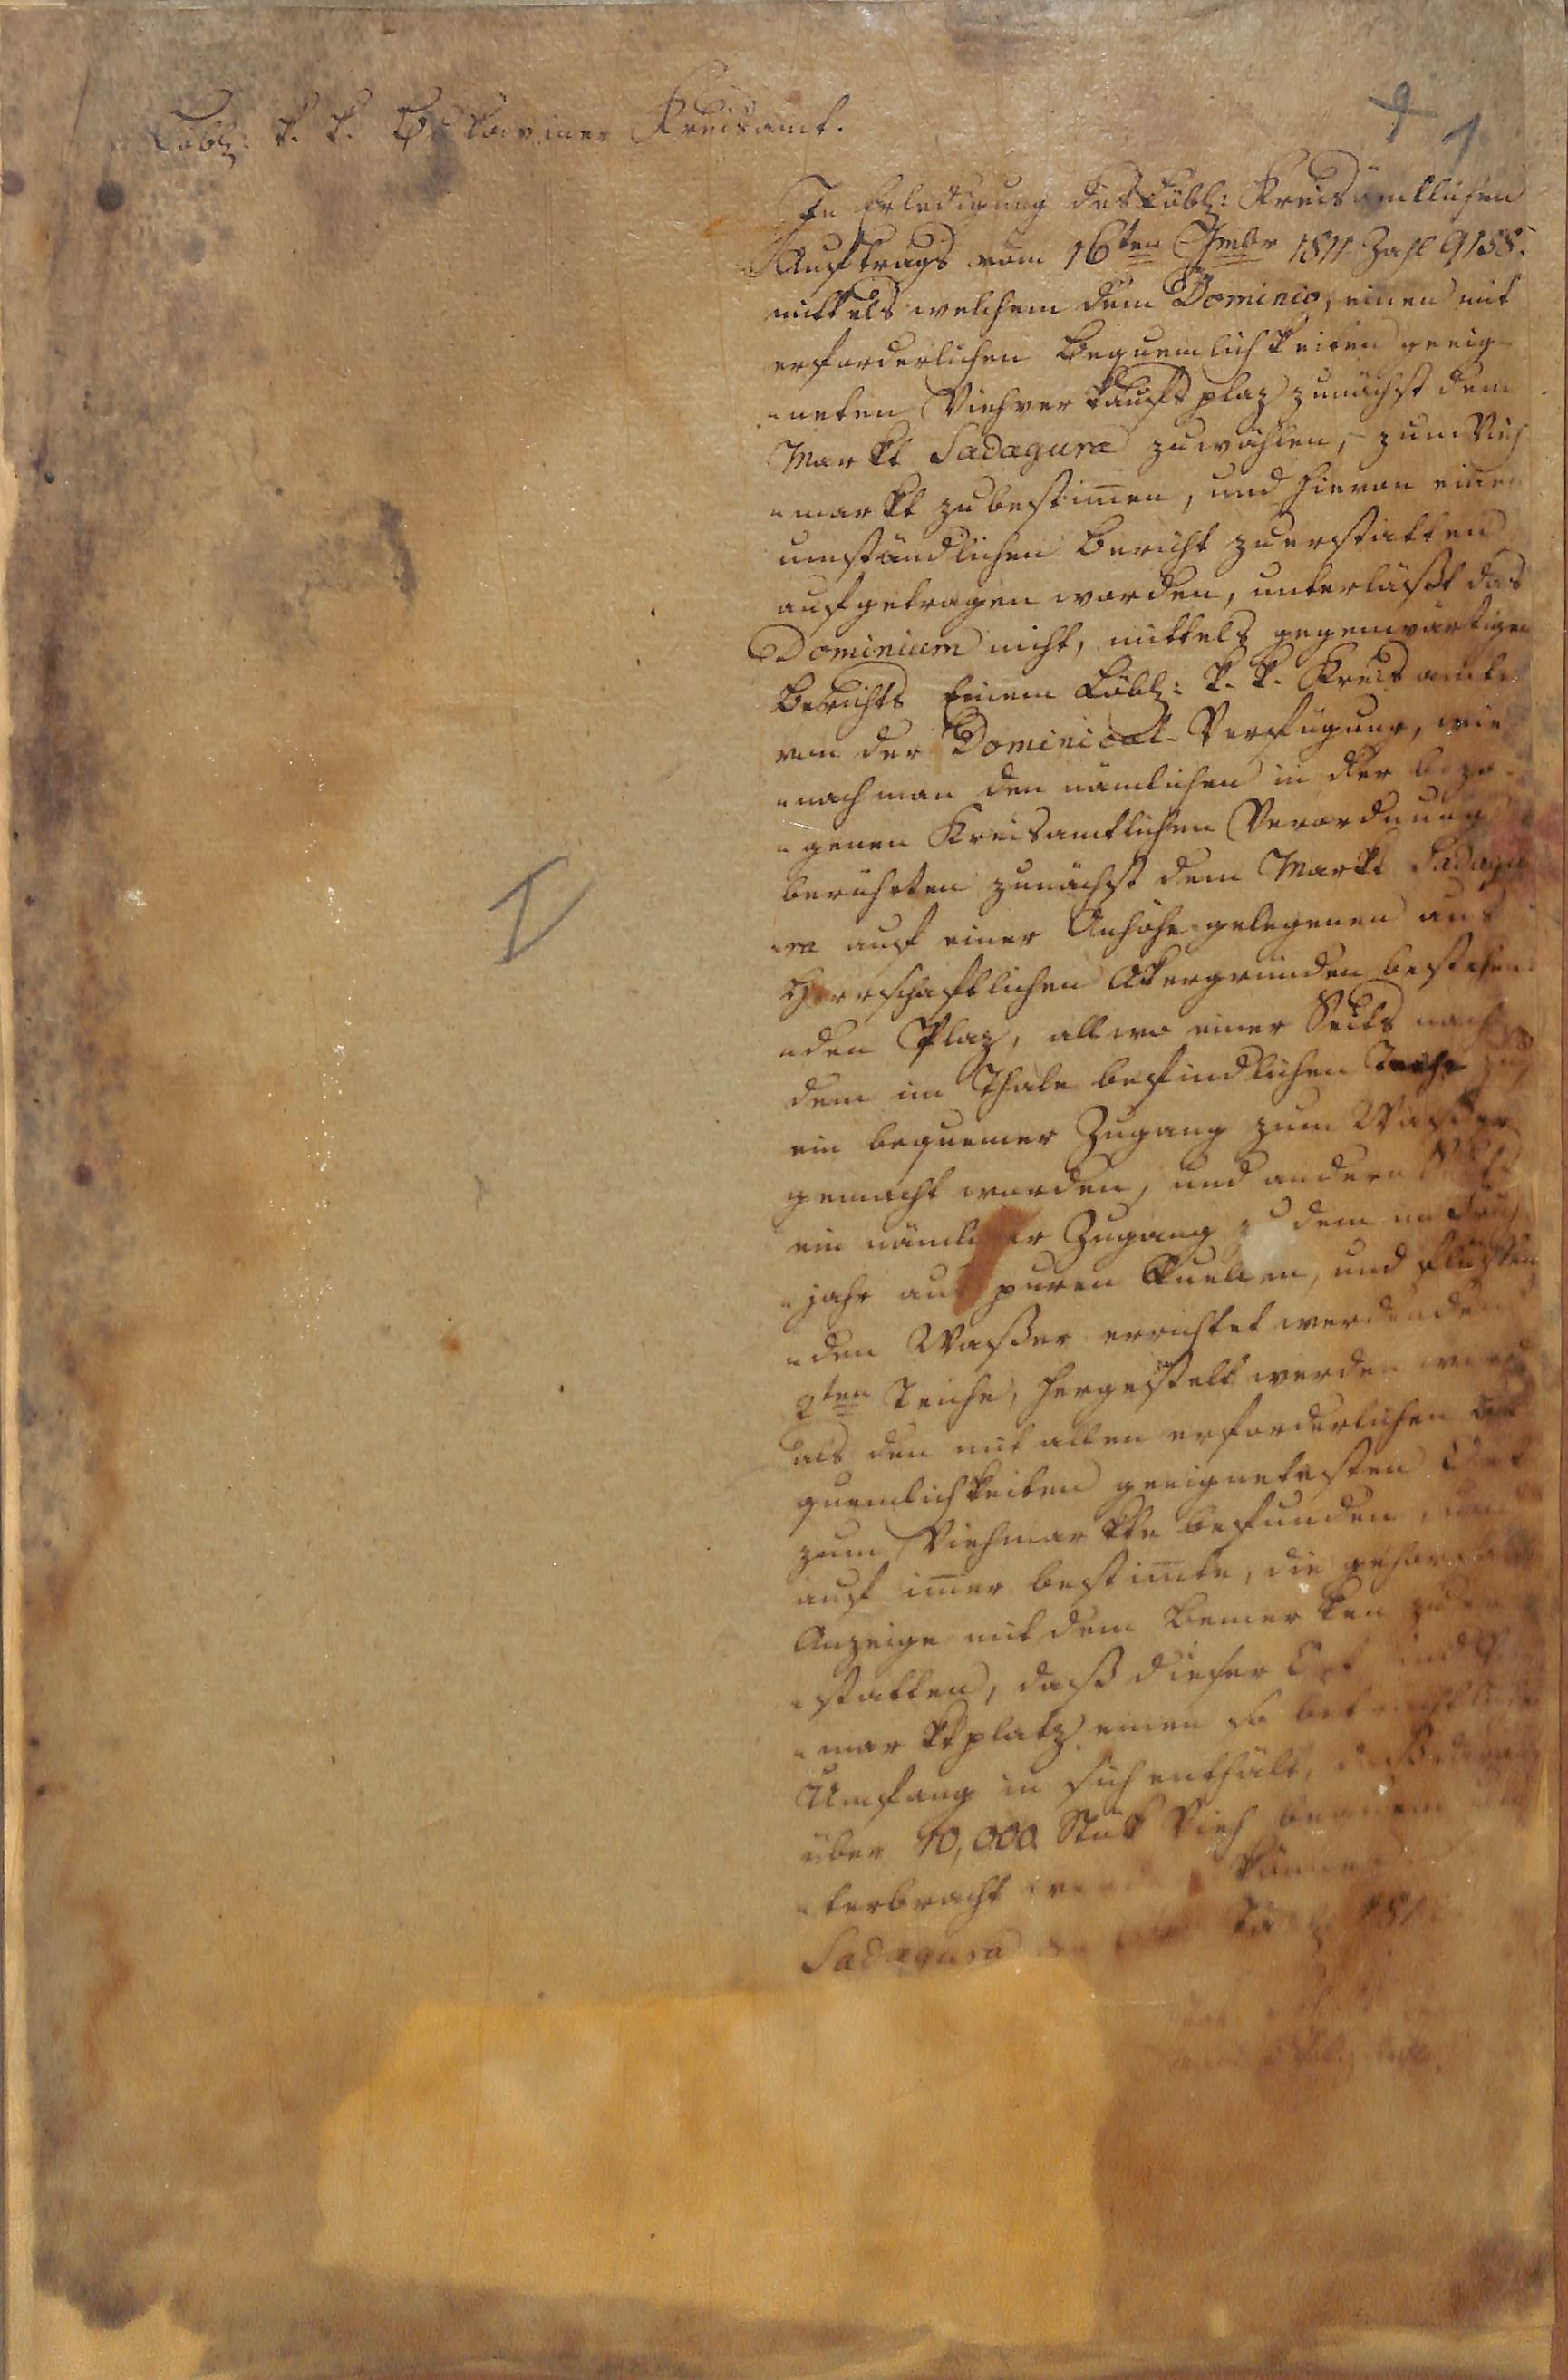 Löbl: k. k. Bukowiner Kreisamt.
1
In Erledigung des Löbl: Kreisämtlichen
Auftrags vom 16ten 9mbr 1811 Zahl 9158.
mittels welchem dem Dominio, einen mit
erforderlichen Bequemlichkeiten geeig-
-neten Viehverkaufsplaz zunächst dem
Markt Sadagura zu wählen, zum Vieh
-markt zu bestim̅en, und hievon einen
umständlichen Bericht zu erstatten
aufgetragen worden, unterläßt das
Dominium nicht, mittels gegenwärtigen
Berichts Einem Löbl: k. k. Kreisamte
von der Dominical-Verfügung, wie
-nach man den nämlichen in der bezo-
-genen Kreisamtlichen Verordnung
berührten zunächst dem Markt Sadagu
-ra auf einer Anhöhe gelegenen aus
Herrschaftlichen Akergründen bestehen
-den Plaz, allwo einer Seits nach
dem im Thale befindlichen Teiche zu
ein bequemer Zugang zum Waßer
gemacht worden, und andern Seits
ein nämlicher Zugang zu dem im Früh
-jahr aus puren Quellen, und flüßen
-den Waßer errichtet werdenden
2ten Teiche, hergestellt werden wird
als den mit allen erforderlichen Be
quemlichkeiten geeignetesten Ort
zum Viehmarkte befunden, und
auf im̅er bestim̅te, die gehorsamste
Anzeige mit dem Bemerken zu er
-statten, daß dieser Ort und Vieh
-marktplatz einen so beträchtlichen
Umfang in sich enthält, daß
über 10,000 Stük Vieh bequem un
-terbracht werden können.
Sadagura den 181